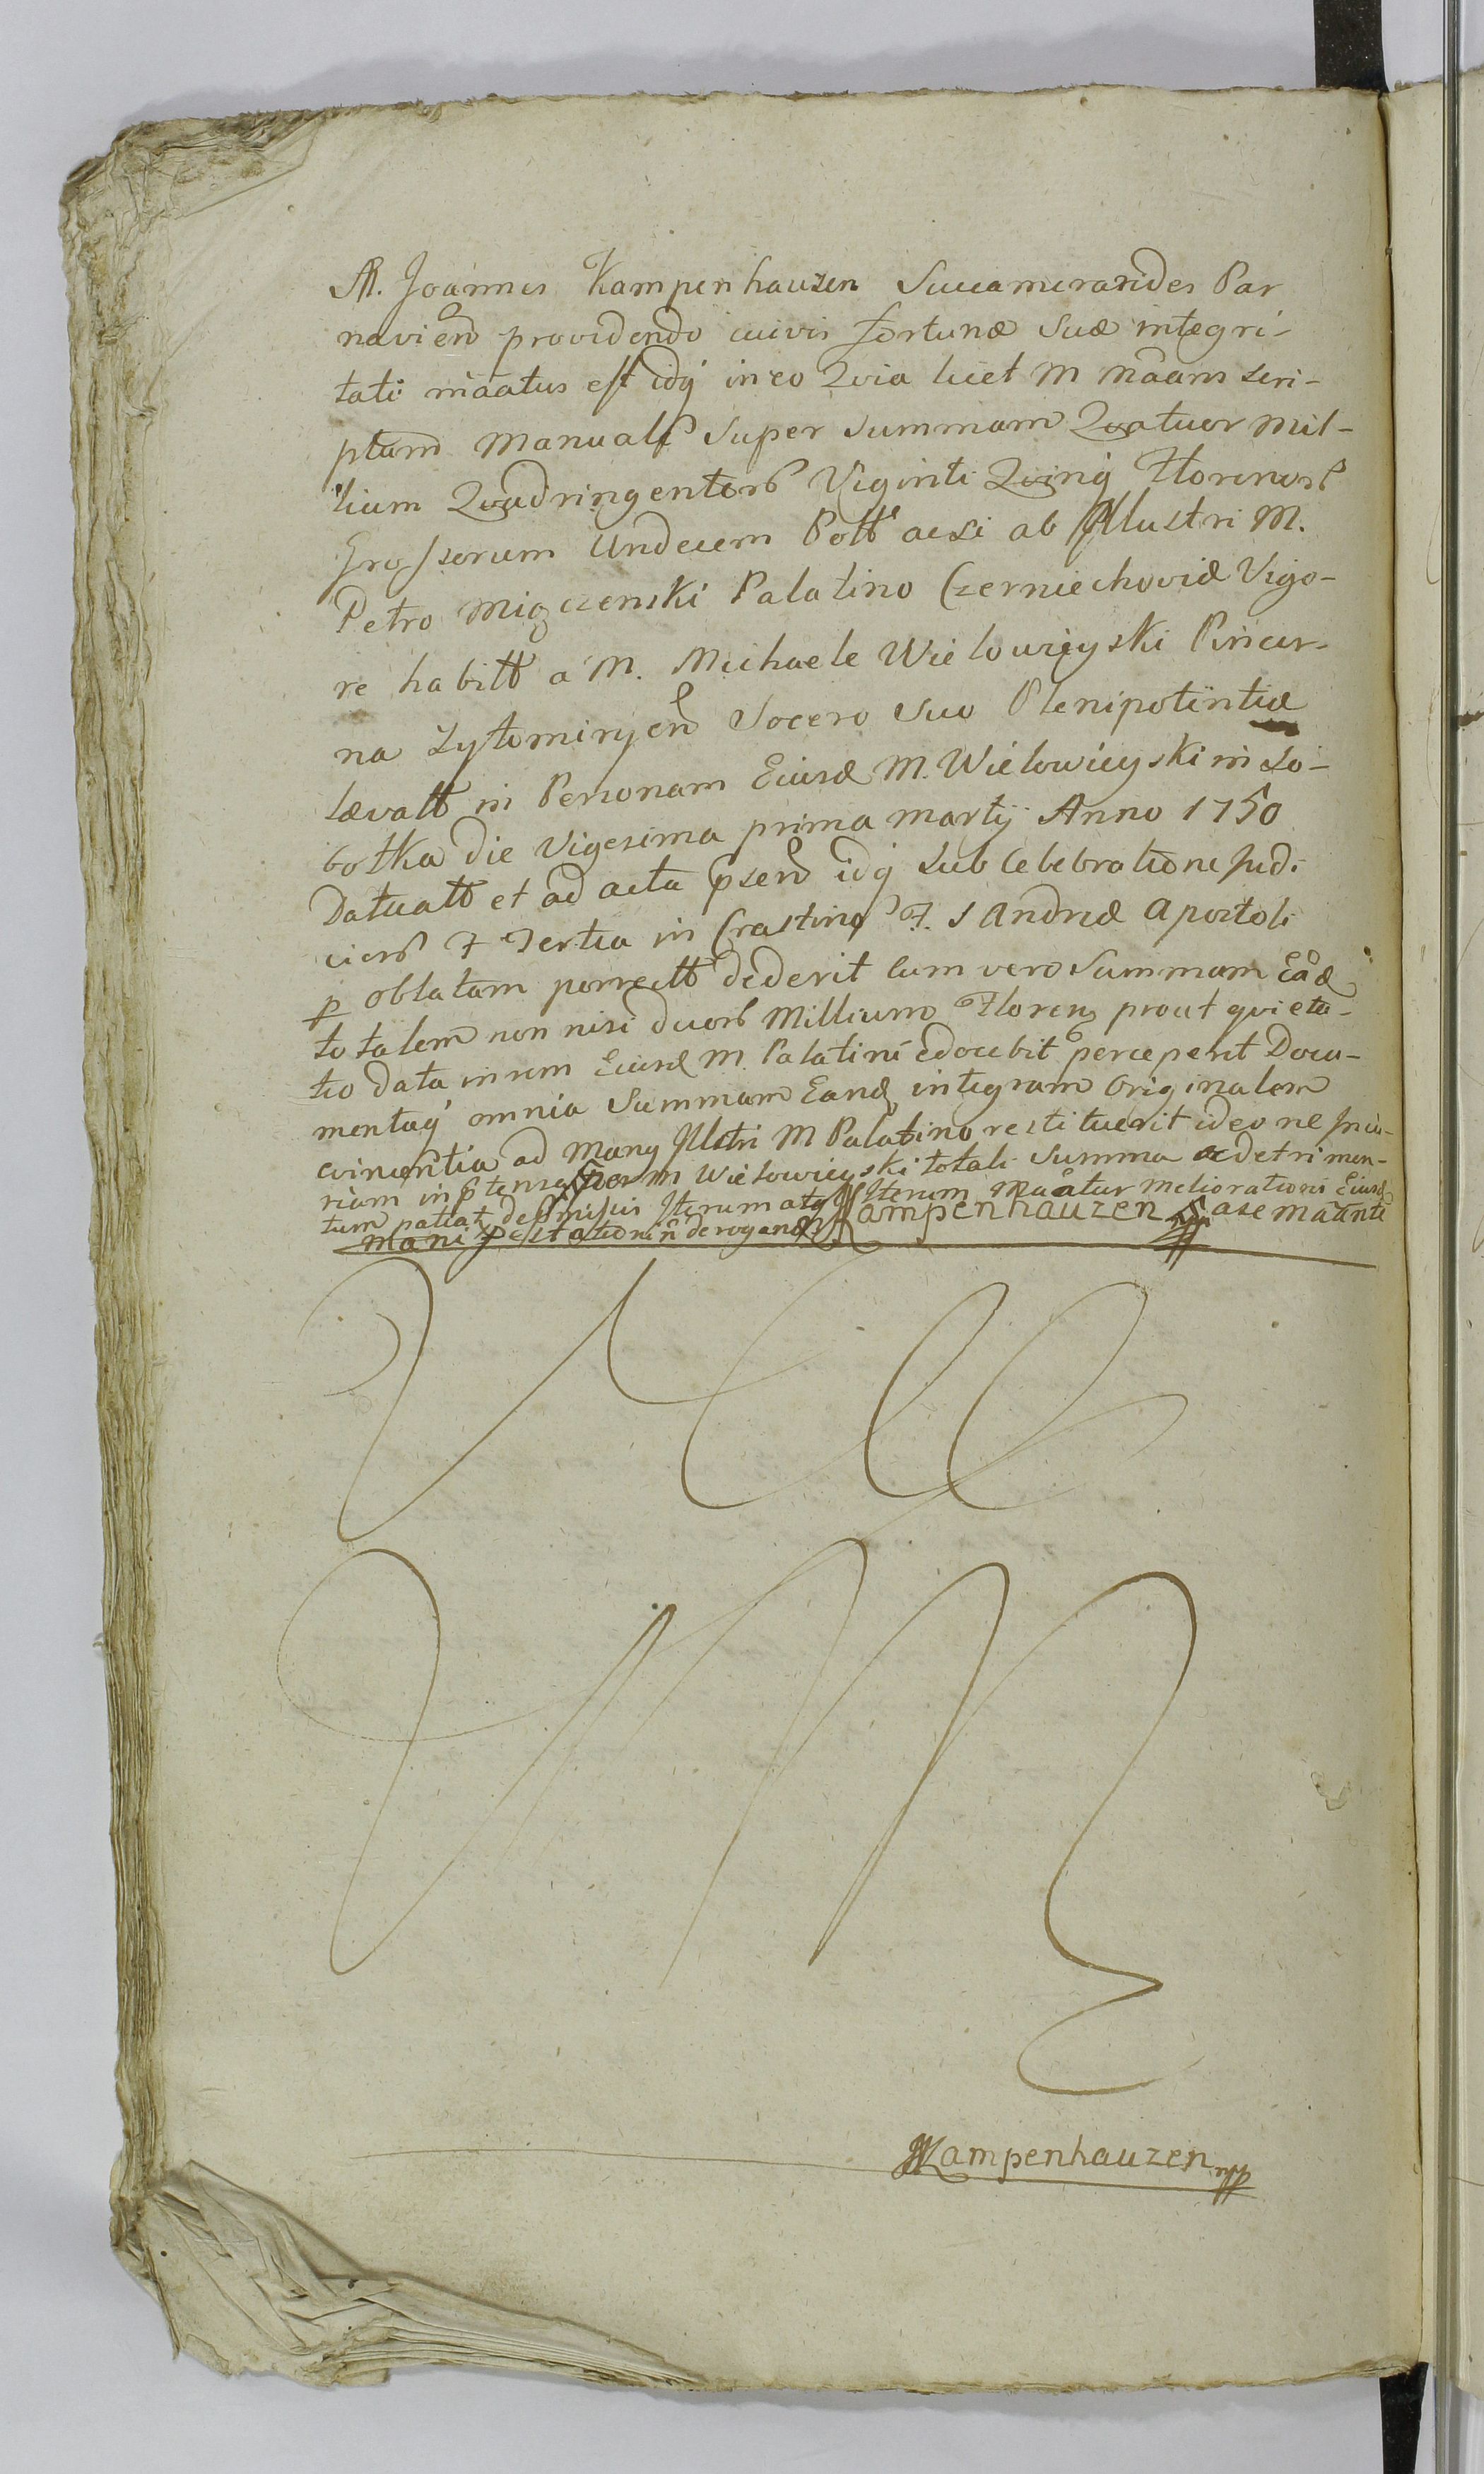 M. Joannes Kampenhauzen Succamerarides Par
navień providendo cuivis fortunæ Suæ integri-
tati māatus est idq́ in eo Qvia licet M Māans scri-
ptum Manuale Super Summam Qvatuor Mil-
lium Qvadringentorƀ Viginti Qvinq́ Florenorƀ
Grossorum Undecem Poltt acsi ab Illustri M.
Petro Miączenski Palatino Czerniechoviæ Vigo-
re habitt a M. Michaele Wielowieyski Pincer-
na Zytomiryeń Socero Suo Plenipotentiæ
lævatt in Personam Eiusd M. Wielowieyski in So-
botka die Vigesima prima Martij Anno 1750
Datuatt et ad acta p̄señ idq́ sub Celebratione Judi
ciorƀ F Tertia in Crastino F. S Andreæ Apostoli
p oblatam porrectt dederit Cum vero Summam Eād
totalem non nisi duorƀ Millium Floreń prout quieta-
tio data in rem Eiusd M. Palatini edocebit perceperit Docu-
mentaq́ omnia Summam Eand integram Originalem
evincentia ad Manq Illstri M Palatino restituerit ideo ne Inju-
riam in p̄tensa per M Wielowieyski totali Summa ac detrimen-
tum patiat de p̄missis Iterum atq Iterum Māatur Meliorationi Eiusd
Manifestationi ń derogand JKampenhauzen a se Māanti
JKampenhauzen mpp